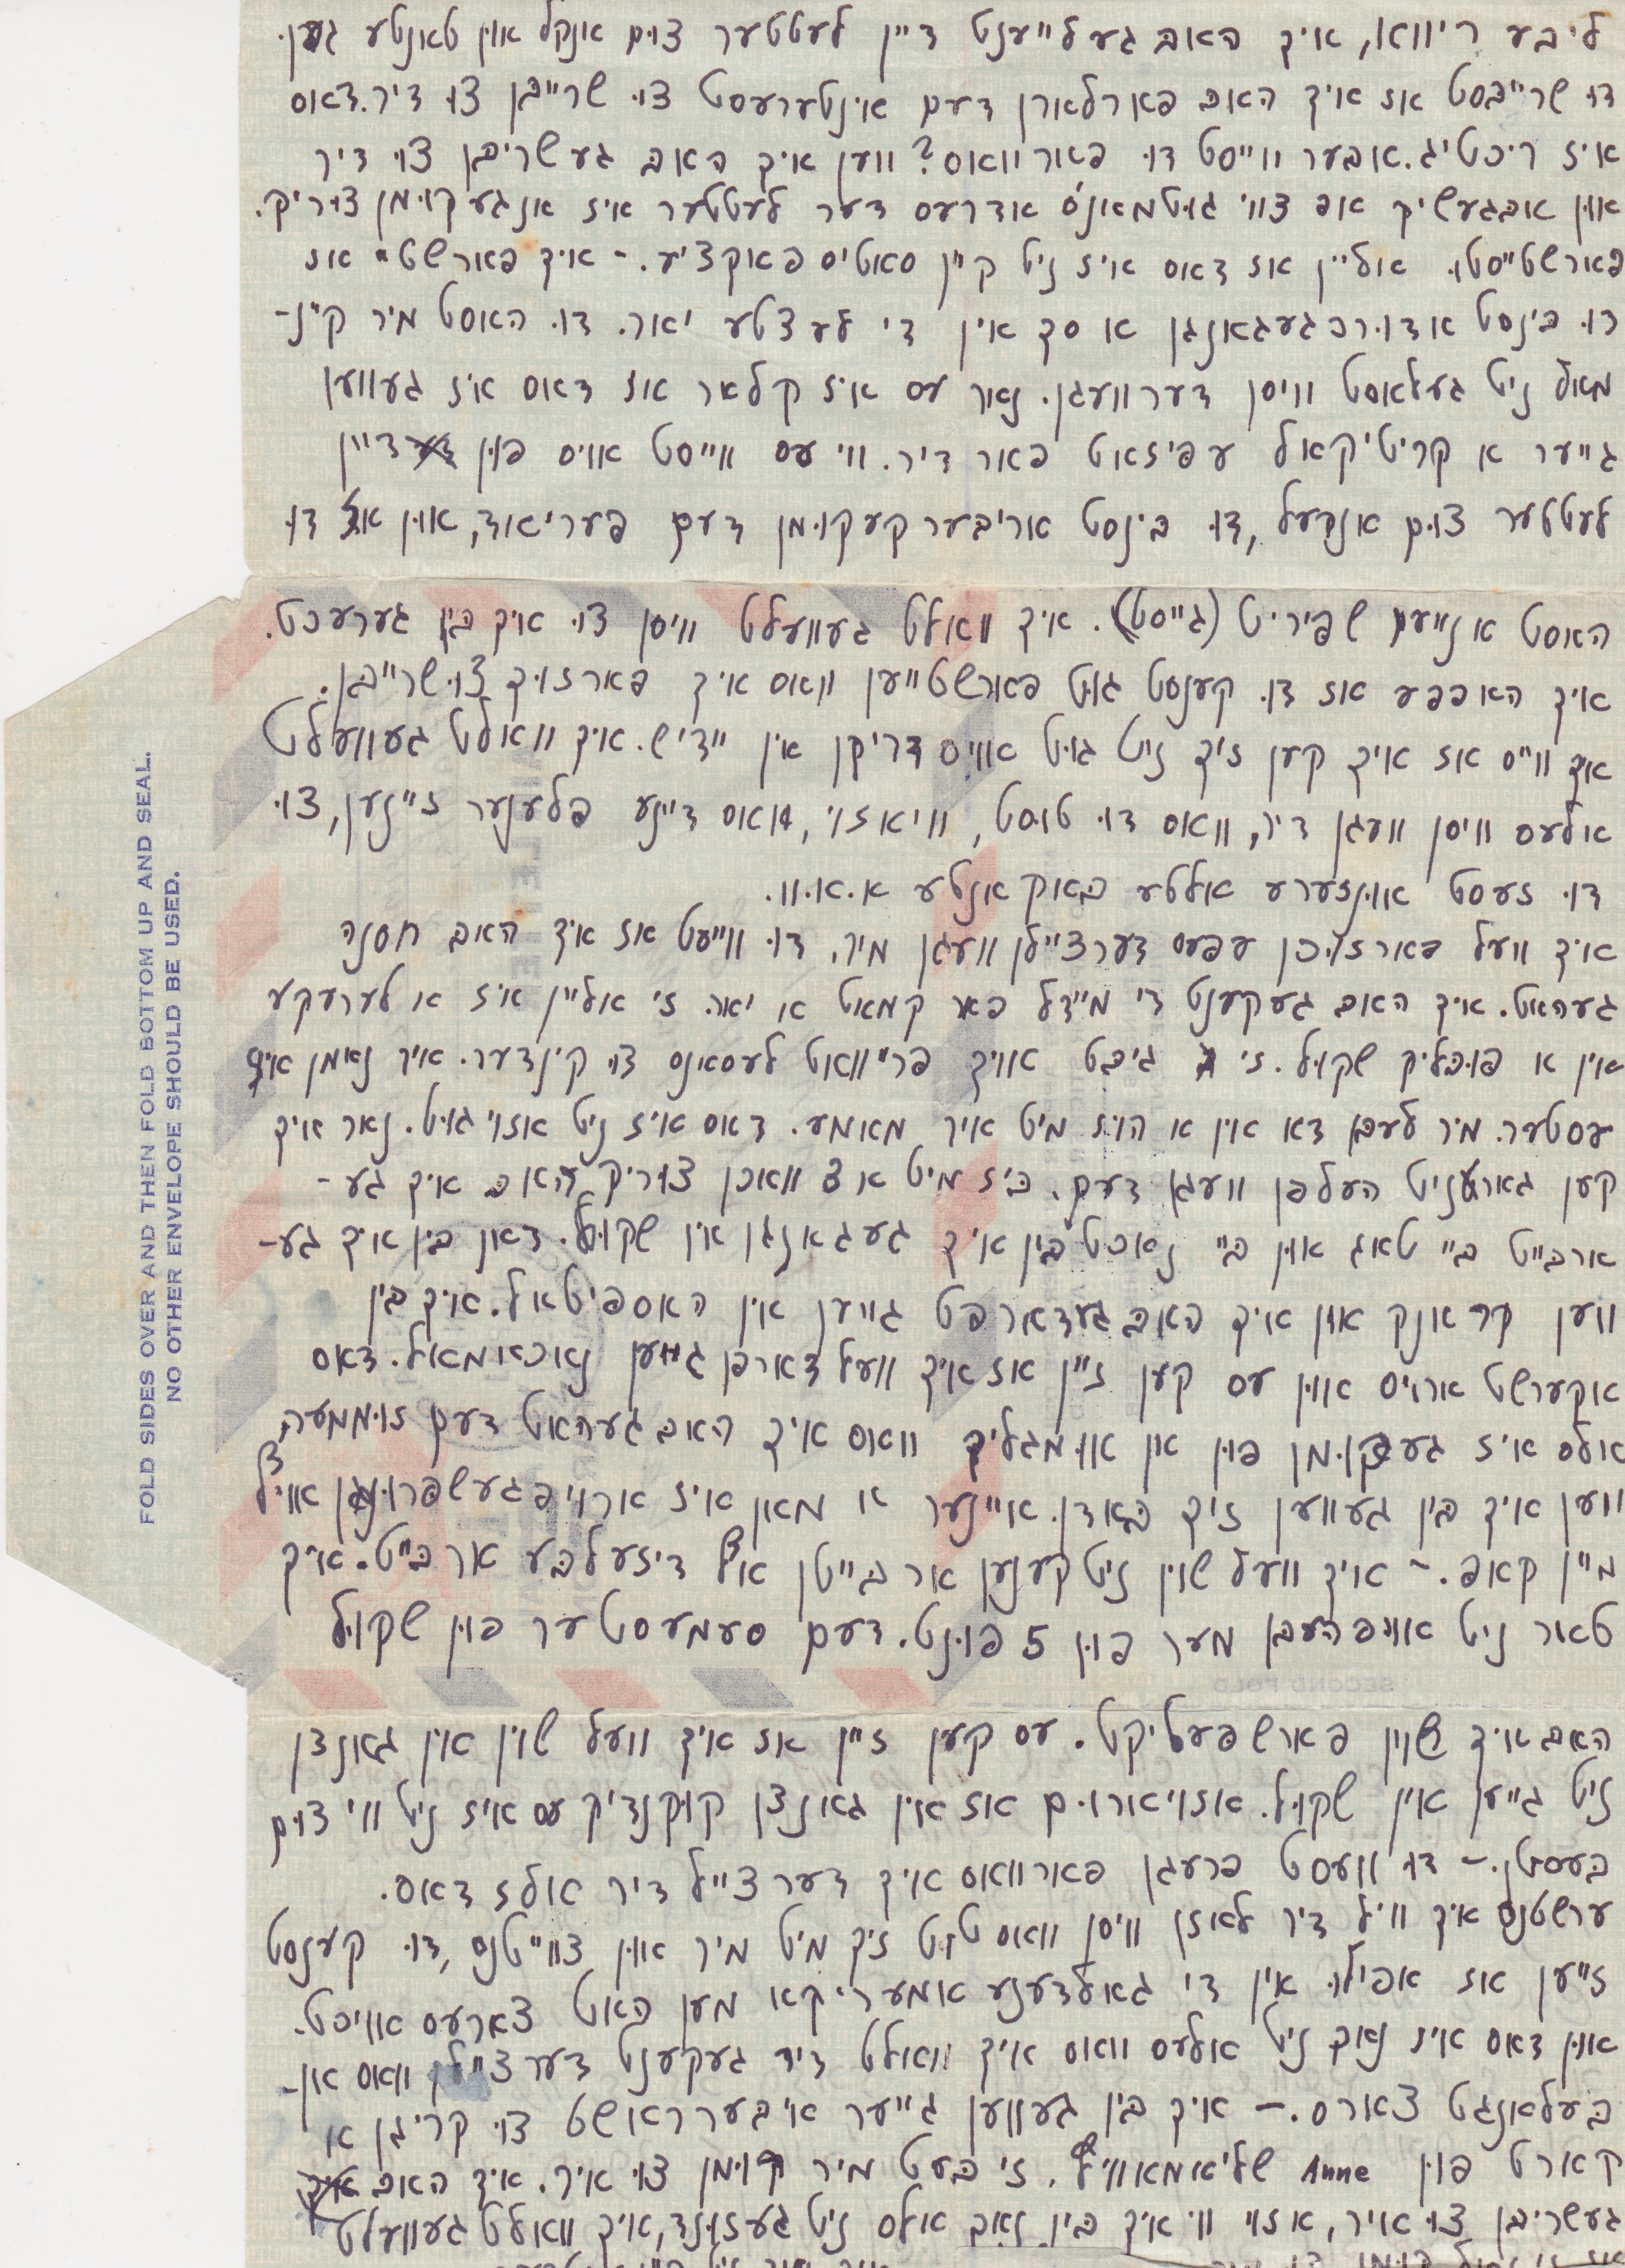 ליבע ריווא, איך האב געלייענט דיין לעטטער צום אונקל און טאנטע גען.
דו שרייבסט אז איך האב פארלארן דעם אינטערעסט צו שרייבן צו דיר. דאס
איז ריכטיג. אבער ווייסט דו פאר וואס? ווען איך האב געשריבן צו דיר
און אבגעשיק אפ צווי גוטמאנ'ס אדרעס דער לעטטער איז אנגעקומן צוריק.
פארשטייסטו אליין אז דאס איז ניט קיין סאטיספאקציע. - איך פארשטיי אז
דו בינסט אדורכגעגאנגן א סך אין די לעצטע יאר. דו האסט מיר קיינ-
מאל ניט געלאסט וויסן דערוועגן. נאר עס איז קלאר אז דאס איז געווען
גייער א קריטיקאל עפיזאט פאר דיר. ווי עס ווייסט אויס פון דיין
לעטטער צום אנקעל, דו בינסט אריבערקעקומן דעם פעריאד, און אז דו
האסט א נייעם שפיריט (גייסט). איך וואלט געוועלט וויסן צו איך בין גערעכט.
איך האפפע אז דו קענסט גוט פארשטייען וואס איך פארזוך צו שרייבן.
איך ווייס אז איך קען זיך ניט גוט אויסדריקן אין יידיש. איך וואלט געוועלט
אלעס וויסן וועגן דיר, וואס דו טוסט, וויאזוי, וואס דיינע פלענער זיינען, צו
דו זעסט אונזערע אלטע באקאנטע א.א.וו.
איך וועל פארזוכן עפעס דערציילן וועגן מיר. דו ווייעט אז איך האב חסנה
געהאט. איך האב געקענט די מיידל פאר קמאט א יאר. זי אליין איז א לערערקע
אין א פובליק שקול. זי גיבט אויך פרייוואט לעסאנס צו קינדער. איר נאמן איז
עסטער. מיר לעבן דא אין א הויז מיט איר מאמע. דאס איז ניט אזוי גוט. נאר איך
קען גארניט העלפן וועגן דעם. ביז מיט א 3 וואכן צוריק האב איך גע-
ארבייט ביי טאג און ביי נאכט בין איך געגאנגן אין שקול. דאן בין איך גע-
ווען קראנק און איך האב געדארפט גייען אין האספיטאל. איך בין
אקערשט ארויס און עס קען זיין אז איך וועל דארפן גייען נאכאמאל. דאס
אלס איז געקומן פון אן אומגליק וואס איך האב געהאט דעם זוממער
ווען איך בין געווען זיך באדן. איינער א מאן איז ארויפגעשפרונגן אויף
מיין קאפ. - איך וועל שוין ניט קענען ארבייטן אויף דיזעלבע ארבייט. איך
טאר ניט אויפהעבן מער פון 5 פונט. דעם סעמעסטער פון שקול
האב איך שוין פארשפעטיקט. עס קען זיין אז איך וועל שוין אין גאנצן
ניט גייען אין שקול. אזויארום אז אין גאנצן קוקנדיק עס איז ניט ווי צום
בעסטן. - דו וועסט פרעגן פארוואס איך דערצייל דיר אלז דאס.
ערשטנס איך וויל דיר לאזן וויסן וואס טוט זיך מיט מיר און צווייטנס, דו קענסט
זייען אז אפילו אין די גאלדענע אמעריקא מען האט צארעס אויכט.
און דאס איז נאך ניט אלעס וואס איך וואלט דיר געקענט דערציילן וואס אנ-
בעלאנגט צארס. - איך בין געווען גייער איבערראשט צו קריגן א
קארט פון Anne שליאמאוויץ. זי בעט מיר קומן צו איר. איך האב
געשריבן צו איר, אזוי ווי איך בין נאך אלס ניט געזונד, איך וואלט געוועלט